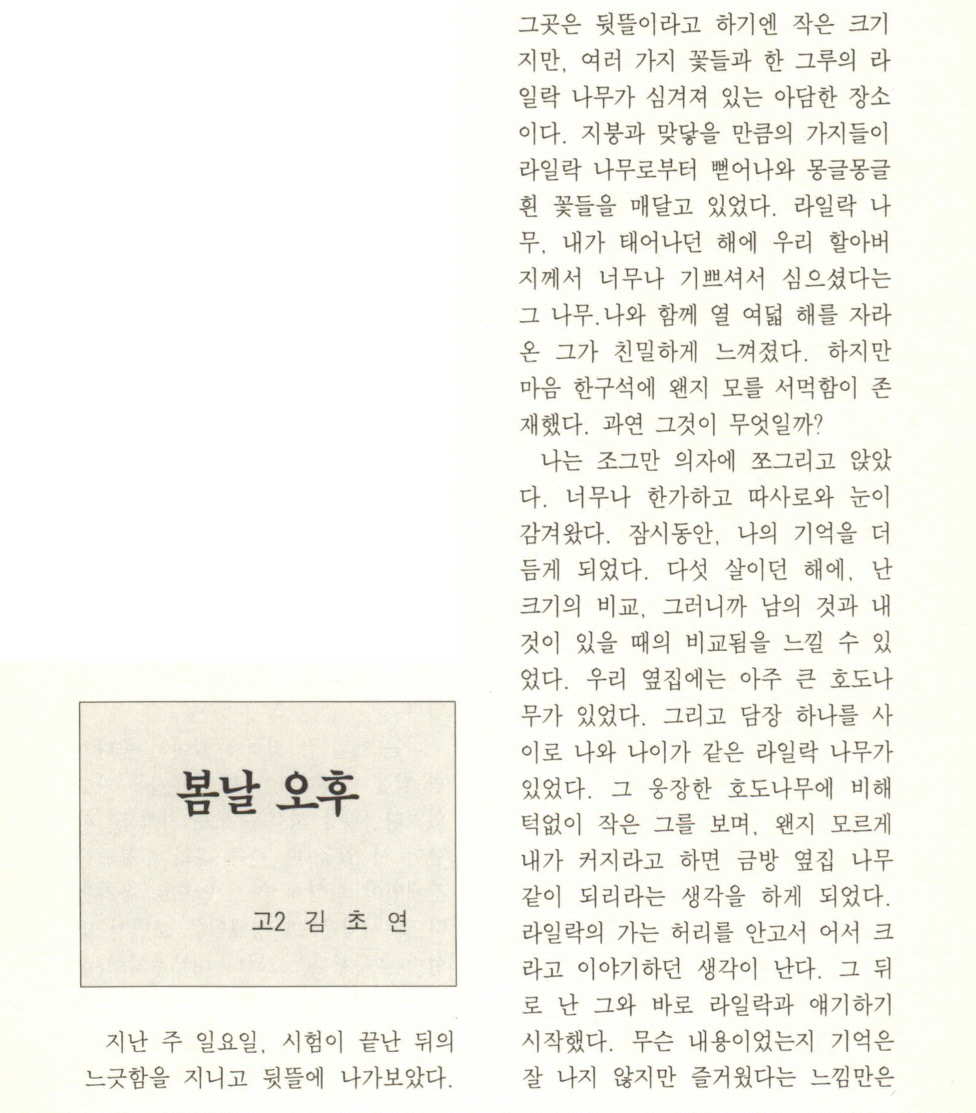 봄날 오후
고2 김 초 연
지난 주 일요일, 시험이 끝난 뒤의
느긋함을 지니고 뒷뜰에 나가보았다.
그곳은 뒷뜰이라고 하기엔 작은 크기
지만, 여러 가지 꽃들과 한 그루의 라
일락 나무가 심겨져 있는 아담한 장소
이다. 지붕과 맞닿을 만큼의 가지들이
라일락 나무로부터 뻗어나와 몽글몽글
흰 꽃들을 매달고 있었다. 라일락 나
무, 내가 태어나던 해에 우리 할아버
지께서 너무나 기쁘셔서 심으셨다는
그 나무.나와 함께 열 여덟 해를 자라
온 그가 친밀하게 느껴졌다. 하지만
마음 한구석에 왠지 모를 서먹함이 존
재했다. 과연 그것이 무엇일까?
나는 조그만 의자에 쪼그리고 앉았
다. 너무나 한가하고 따사로와 눈이
감겨왔다. 잠시동안, 나의 기억을 더
듬게 되었다. 다섯 살이던 해에, 난
크기의 비교, 그러니까 남의 것과 내
것이 있을 때의 비교됨을 느낄 수 있
었다. 우리 옆집에는 아주 큰 호도나
무가 있었다. 그리고 담장 하나를 사
이로 나와 나이가 같은 라일락 나무가
있었다. 그 웅장한 호도나무에 비해
턱없이 작은 그를 보며, 왠지 모르게
내가 커지라고 하면 금방 옆집 나무
같이 되리라는 생각을 하게 되었다.
라일락의 가는 허리를 안고서 어서 크
라고 이야기하던 생각이 난다. 그 뒤
로 난 그와 바로 라일락과 얘기하기
시작했다. 무슨 내용이었는지 기억은
잘 나지 않지만 즐거웠다는 느낌만은